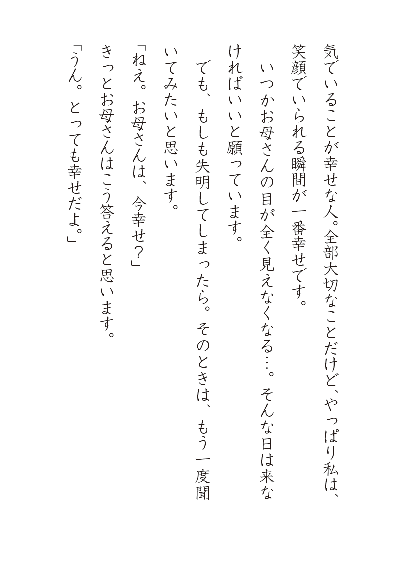 気でいることが幸せな人。全部大切なことだけど、やっぱり私は、
笑顔でいられる瞬間が一番幸せです。
　いつかお母さんの目が全く見えなくなる…。そんな日は来な
ければいいと願っています。
　でも、もしも失明してしまったら。そのときは、もう一度聞
いてみたいと思います。
「ねえ。お母さんは、今幸せ？」
きっとお母さんはこう答えると思います。
「うん。とっても幸せだよ。」